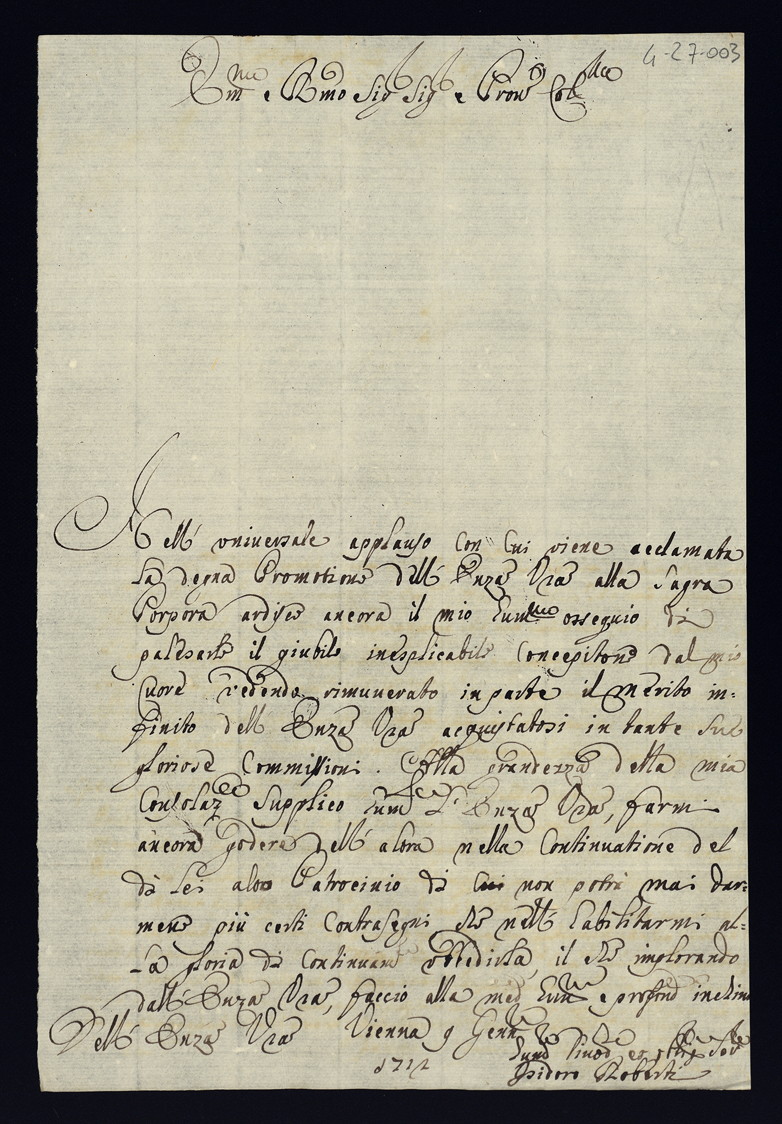 4-27-003
Em̅o e Rmo Sig Sig e Prone Colmo
Nell' vniuersale applauso con Cui viene acclamata
la degna Promotione dell' Emza Vra alla Sagra
Porpora ardisce ancora il mio Summo ossequio di
palesarle il giubilo inesplicabile Concepitone dal mio
Cuore vedendo rimunerato in parte il Merito in=
finito dell' Emza Vra acquistatosi in tante Sue
gloriose Commissioni. Alla grandezza della mia
Consolaze Supplico l'Emza Vra, farmi
ancora godere dell' altra nella Continuatione del
di Lei alto Patrocinio di Cui non potrà mai dar=
mene più certi Contrasegni che nell' habilitarmi al=
la gloria di Continuam obbedirla, il che implorando
dall' Emza Vra, faccio alla med e profond inchino
Dell' Emza Vra Vienna 9 Genn
1712
Isidoro Roberti